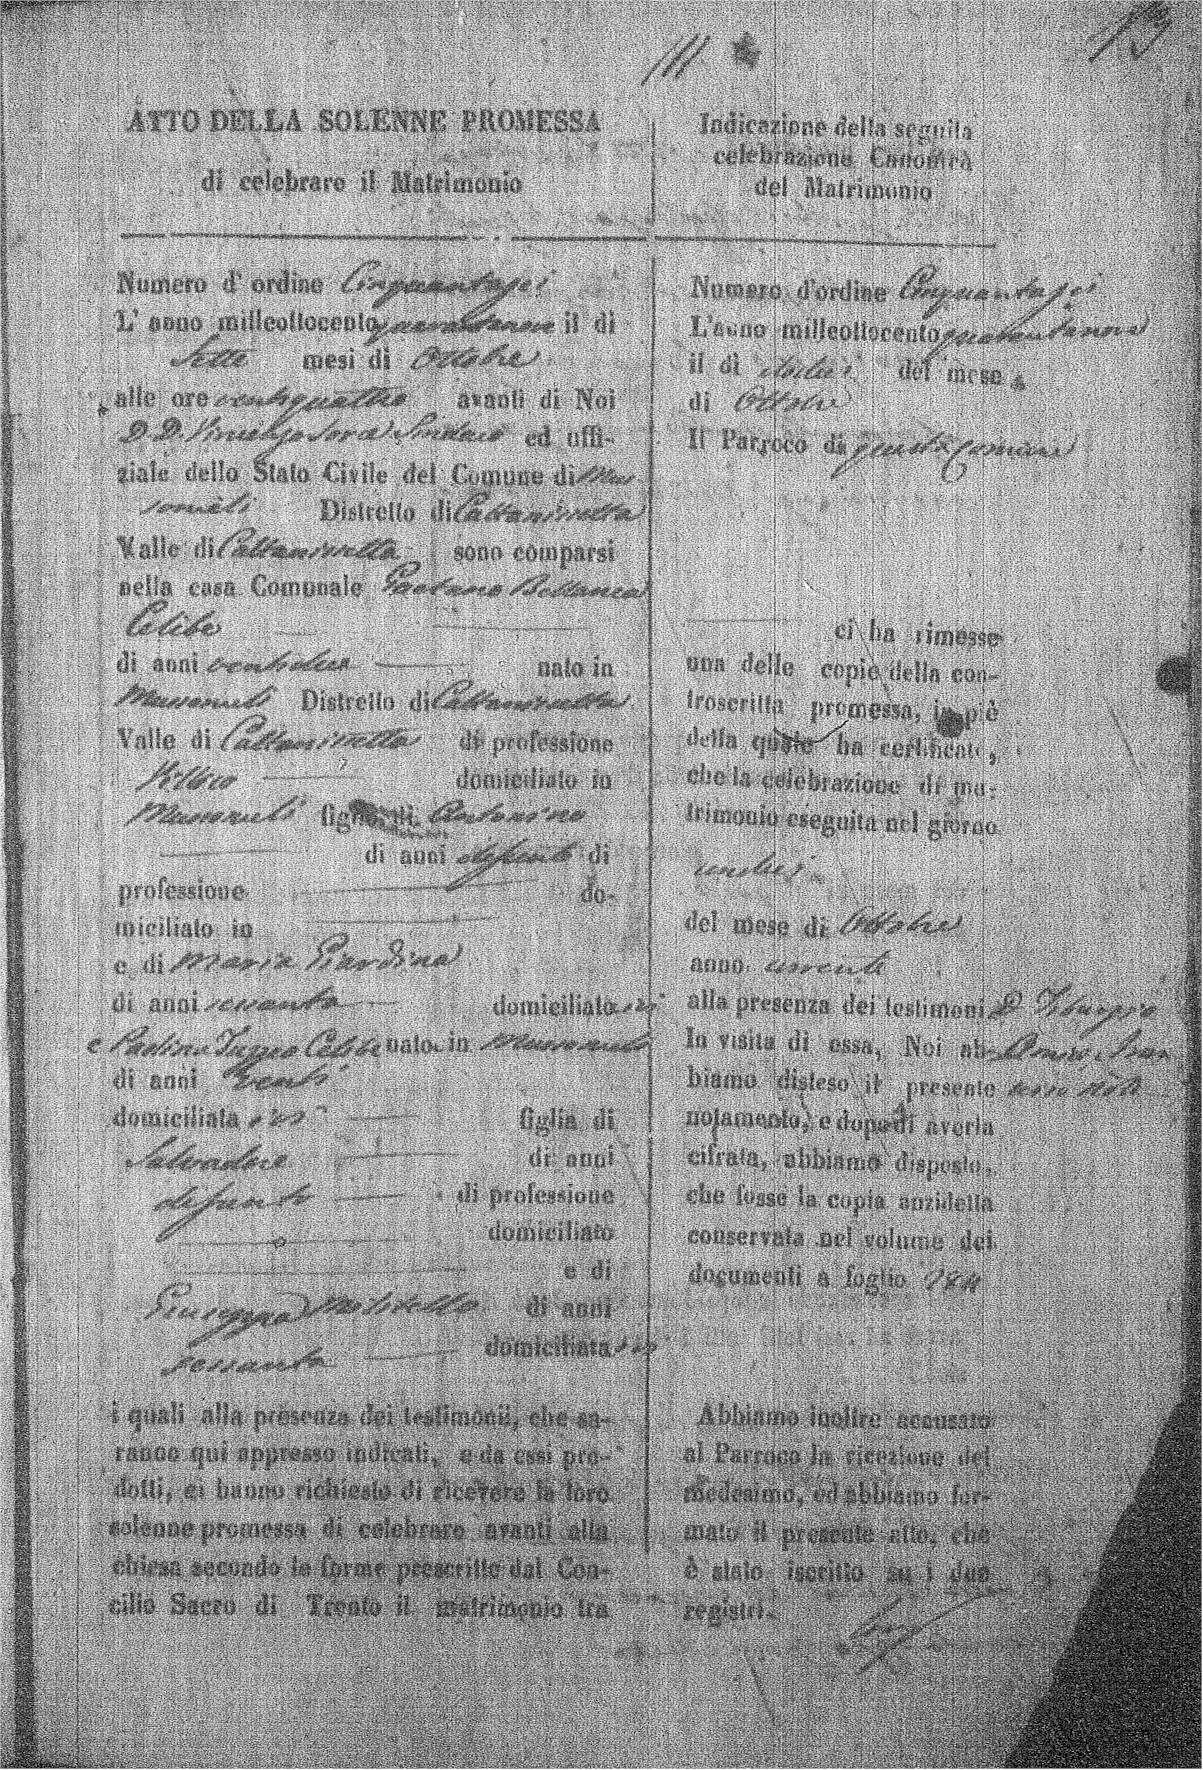 ATTO DELLA SOLENNE PROMESSA
di celebrare il Matrimonio
Numero d' ordine Cinquantasei
L' anno milleottocento quarantanove il dì
Sette mesi di Ottobre
alle ore ventiquattro avanti di Noi
D. D. Vincenzo Sindaco ed uffi-
ziale dello Stato Civile del Comune di Mus
someli Distretto di Caltanissetta
Valle di Caltanissetta sono comparsi
nella casa Comunale Gaetano Bellanca
Celibe
di anni ventidue nato in
Mussomeli Distretto di Caltanissetta
Valle di Caltanissetta di professione
Villico domiciliato in
Mussomeli figlio di Antonino
di anni defunto di
professione do-
miciliato in
e di Maria Giardina
di anni sessanta domiciliato ivi
e Paolina Celibe nato in Mussomeli
di anni venti
domiciliata ivi figlia di
Salvadore di anni
defunto di professione
domiciliato
e di
Giuseppa Mistretta di anni
sessanta domiciliata ivi
i quali alla presenza dei testimonii, che sa-
ranno qui appresso indicati, e da essi pro-
dotti, ci hanno richiesto di ricevere la loro
solenne promessa di celebrare avanti alla
chiesa secondo le forme prescritte dal Con-
cilio Sacro di Trento il matrimonio tra
111
Indicazione della seguita
celebrazione Canonica
del Matrimonio
Numero d'ordine Cinquantasei
L'anno milleottocento quarantanove
il dì undici del mese
di Ottobre
Il Parroco di questa Comune
ci ha rimesse
una delle copie della con-
troscritta promessa, in piè
della quale ha certificato,
che la celebrazione di ma-
trimonio eseguita nel giorno
undici
del mese di Ottobre
anno corrente
alla presenza dei testimoni D.
In visita di essa, Noi ab-
biamo disteso il presente
notamento, e dopo di averla
cifrata, abbiamo disposto,
che fosse la copia anzidetta
conservata nel volume dei
documenti a foglio
Abbiamo inoltre accusato
al Parroco la ricezione del
medesimo, ed abbiamo for-
mato il presente atto, che
è stato iscritto su i due
registri.